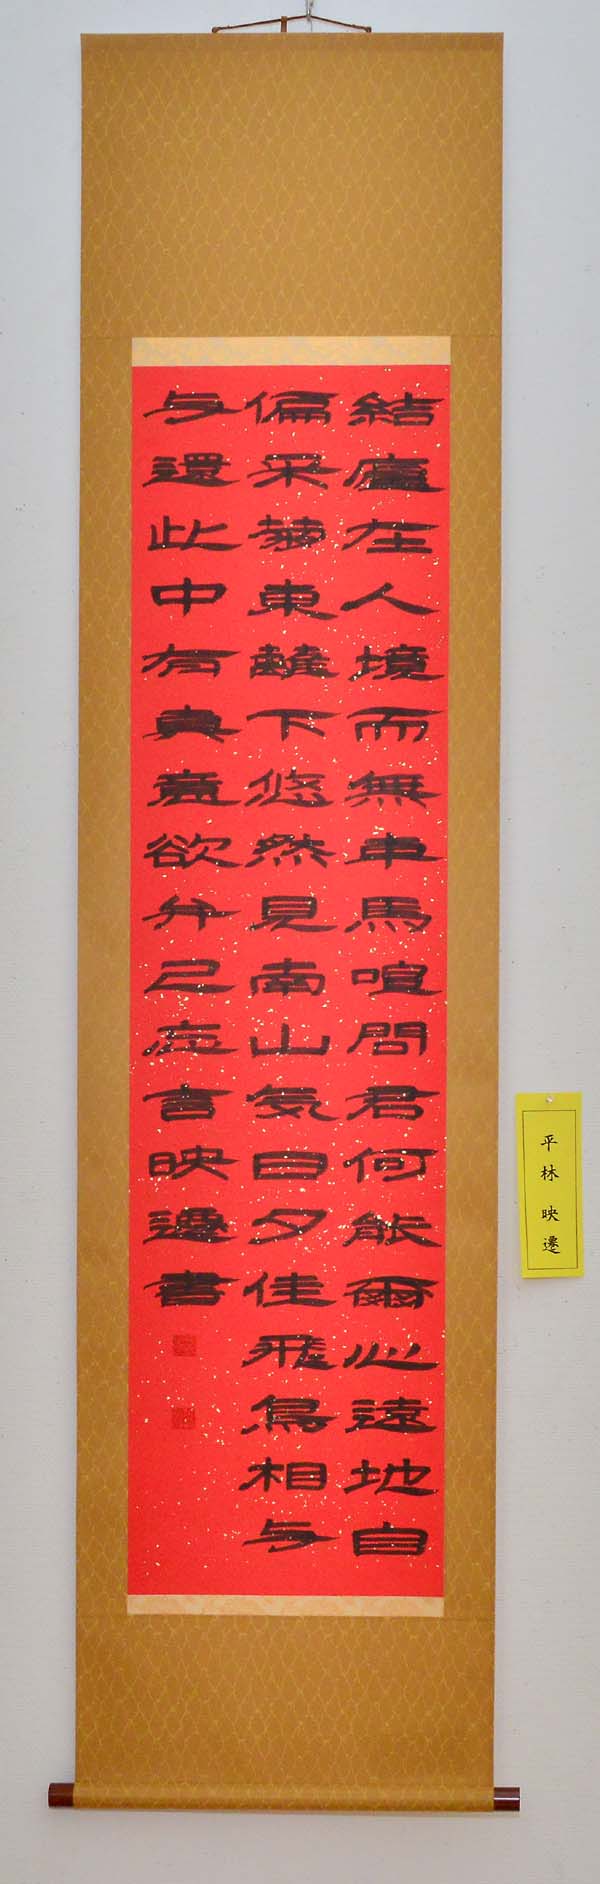 結廬在人境而無車馬喧問君何能爾心遠地自
偏采菊東離下悠然見南山気日夕佳飛鳥相与
与還此中有真意欲弁已忘言映遷書
平林 映遷